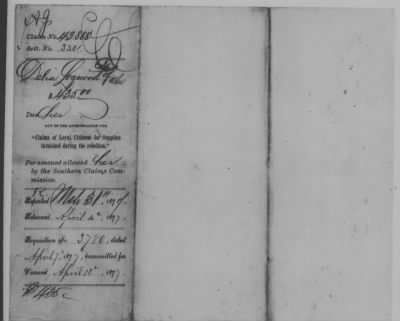 Claim No. 43888
Sett. No. 3301
Delia Logwood
$435.00
Due her
OUT OF THE APPROPRIATION FOR
"Claims of Loyal Citizens for Supplies
furnished during the rebellion."
For amount allowed her
by the Southern Claims Com-
mission.
Reported Mch 31st, 1877.
Returned April 4th, 1877.
Requisition No. 3786, dated
April 7, 1877, transmitted for
Warrant April 10th, 1877.
$435